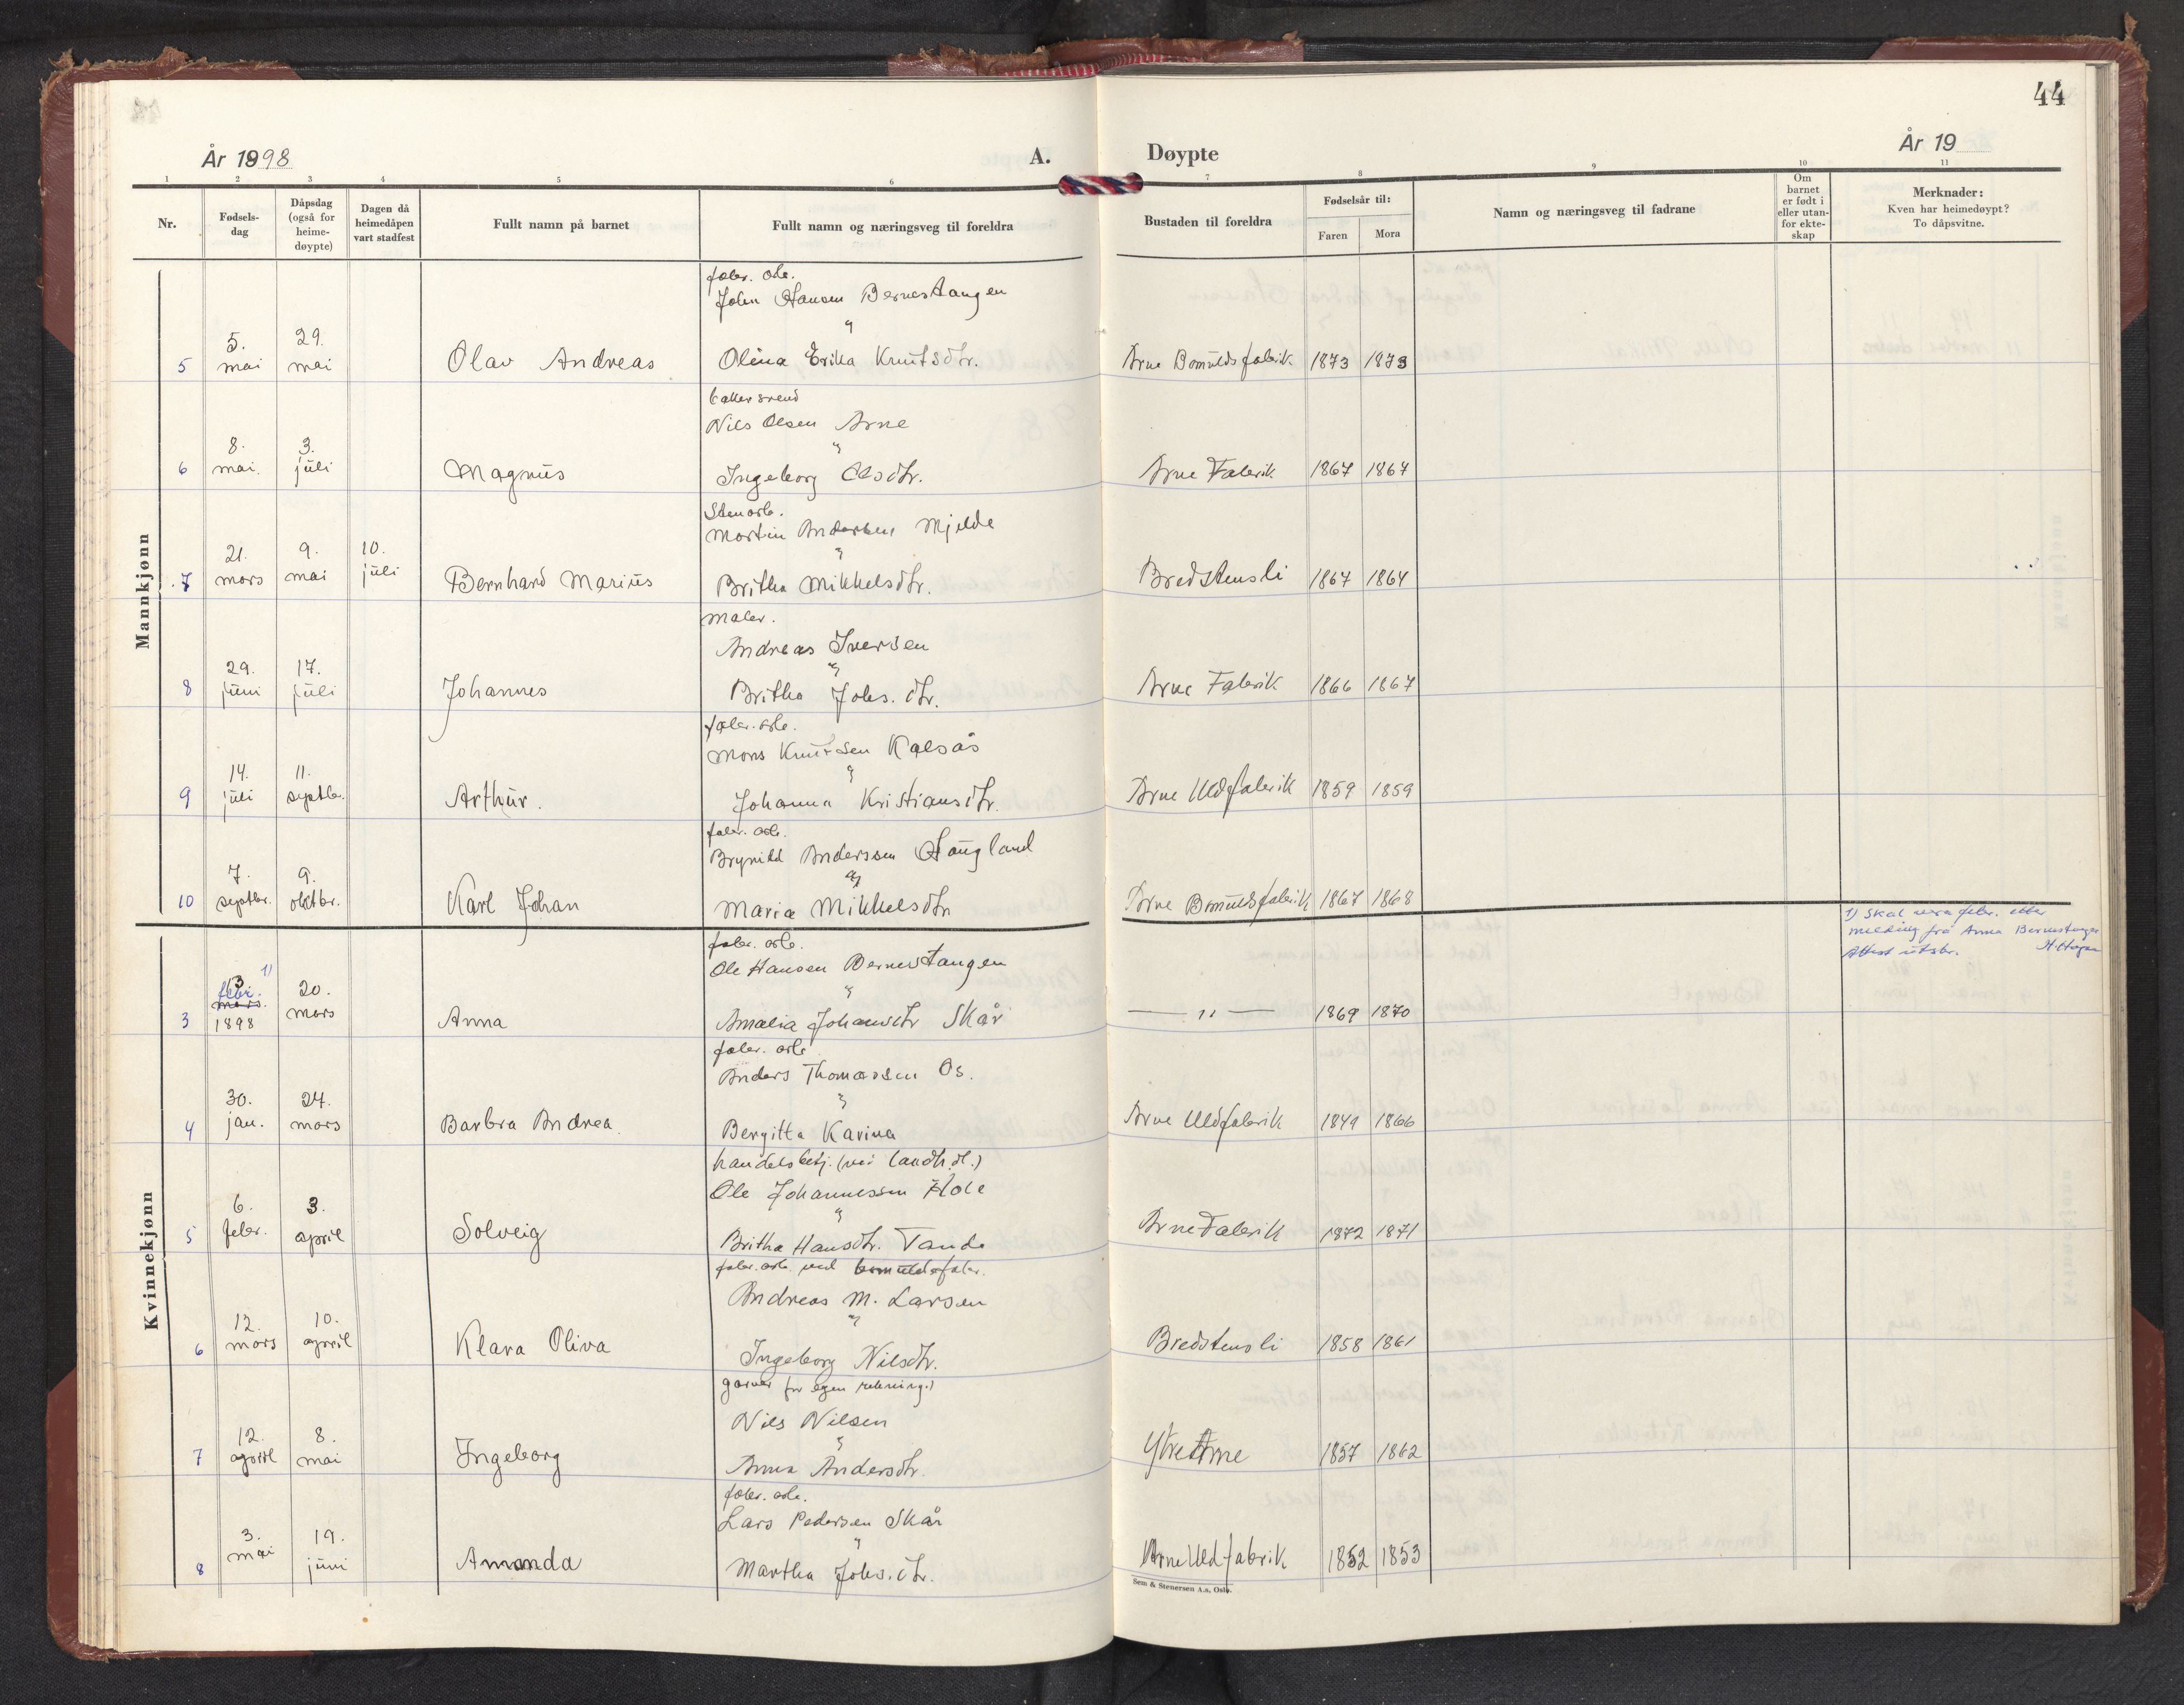 44
År 1898
A.
Døypte
År 19
1 2 3 4 5 6 7 8 9 10 11
Nr.
Fødsels-
dag
Dåpsdag
(også for
heime-
døypte)
Dagen då
heimedåpen
vart stadfest
Fullt namn på barnet
Fullt namn og næringsveg til foreldra
Bustaden til foreldra
Fødselsår til:
Faren Mora
Namn og næringsveg til fadrane
Om
barnet
er født i
eller utan-
for ekte-
skap
Merknader:
Kven har heimedøypt?
To dåpsvitne.
Mannkjønn
fabr. arb.
John Hansen Bernestangen
og
5 5. mai 29. mai Olav Andreas Olina Erika Knutsdtr. Arne Bomuldsfabrik 1873 1873
bakersvend
Nils Olsen Arne
og
6 8. mai. 3. juli Magnus Ingeborg Olsdtr. Arne Fabrik 1867 1867
Stenarb.
Martin Andersen Mjelde
og
7 21. mars 9. mai 10. juli Bernhard Marius Britha Mikkelsdtr. Bredstensli 1867 1864
Maler.
Andreas Iversen
og
8 29. juni 17. juli Johannes Britha Johs. dtr. Arne Fabrik 1866 1867
fabr. arb.
Mons Knutsen Kalsås
og
9 14. juli 11. septbr. Arthur. Johanna Kristiansdtr. Arne Uldfabrik 1859 1859
fabr. arb.
Brynild Anderssen Haugland
og
10 7. septbr. 9. oktbr. Karl Johan Maria Mikkelsdtr Arne Bomuldsfabrik 1867 1868
Kvinnekjønn
1) Skal vera febr. etter
melding frå Anna Bernestangen
Attest utskr. H. Hagen
fabr. arb.
Ole Hansen Bernestangen
og
3 febr. 1) mars. 1898 20. mars Anna Amalia Johansdtr Skår — " — 1869 1870
fabr. arb
Anders Thomassen Os.
og
4 30. jan. 24. mars Barbra Andrea. Bergitta Karina Arne Uldfabrik 1849 1866
handelsbetj. (ved landh.dl.)
Ole Johannessen
og
5 6. febr. 3. april Solveig Britha Hansdtr. Tande Arne Fabrik 1872 1871
fabr. arb. ved bomuldsfabr.
Andreas M. Larsen
og
6 12. mars 10. april Klara Oliva Ingeborg Nilsdtr. Bredstensli 1858 1861
garver for egen rekning.)
Nils Nilsen
og
7 12. april 8. mai Ingeborg Anna Andersdtr. Ytre Arne 1857 1862
fabr. arb.
Lars Pedersen Skår
og
8 3. mai 19. juni Amanda Martha Johs. dtr. Arne Uldfabrik 1852 1853
Sem & Stenersen A.s, Oslo.